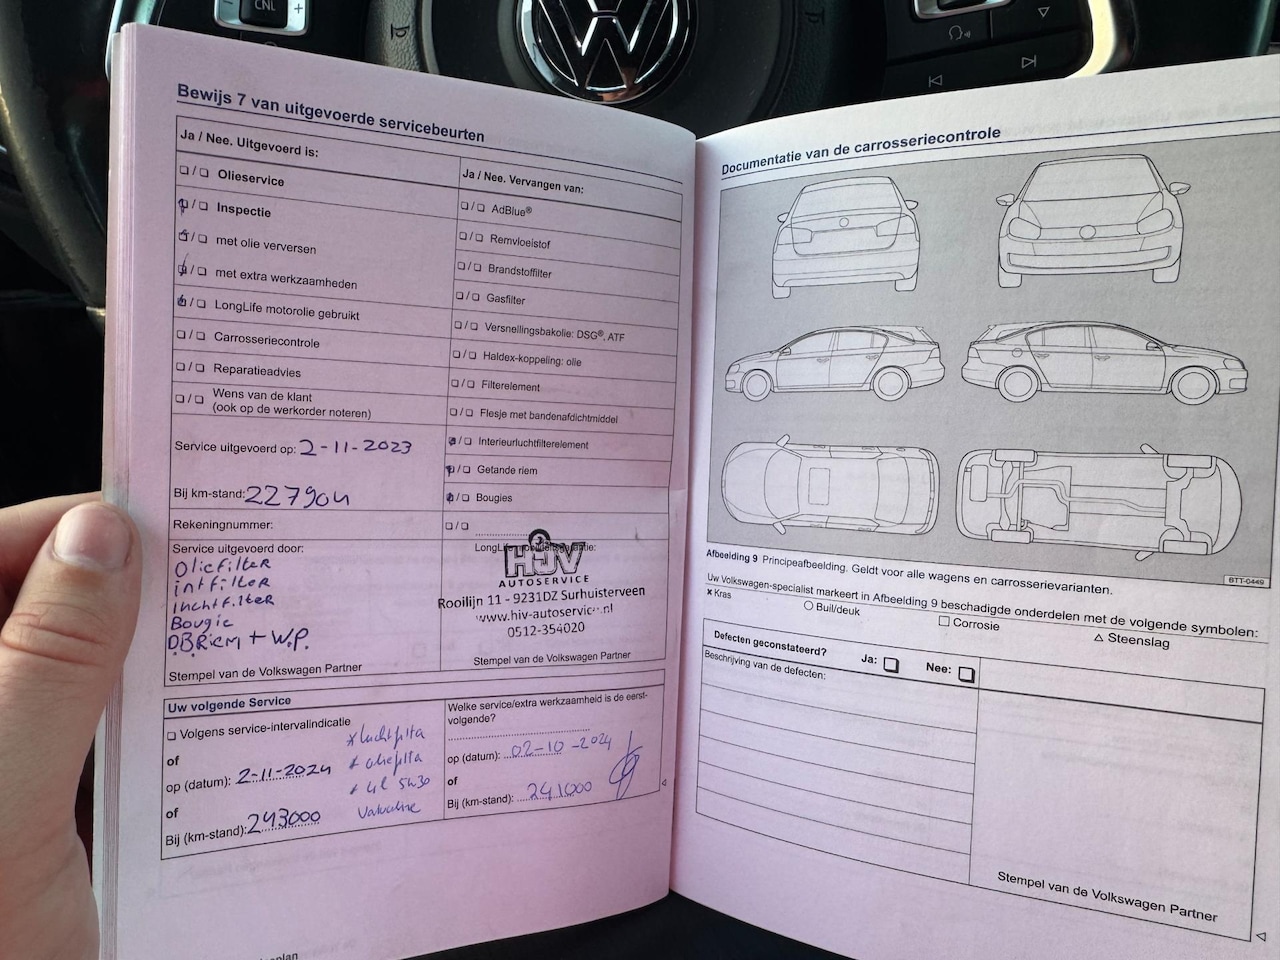 CNL
Bewijs 7 van uitgevoerde servicebeurten
Ja / Nee. Uitgevoerd is:
Olieservice
Inspectie
met olie verversen
met extra werkzaamheden
LongLife motorolie gebruikt
Carrosseriecontrole
Reparatieadvies
Wens van de klant
(ook op de werkorder noteren)
Service uitgevoerd op: 2-11-2023
Bij km-stand: 227904
Rekeningnummer:
Service uitgevoerd door:
Oliefilter
intfilter
luchtfilter
Bougie
D.BRiem + W.P.
Stempel van de Volkswagen Partner
Ja / Nee. Vervangen van:
AdBlue®
Remvloeistof
Brandstoffilter
Gasfilter
Versnellingsbakolie: DSG®, ATF
Haldex-koppeling: olie
Filterelement
Flesje met bandenafdichtmiddel
Interieurluchtfilterelement
Getande riem
Bougies
HJV
AUTOSERVICE
Rooilijn 11 - 9231DZ Surhuisterveen
www.hjv-autoservice.nl
0512-354020
Stempel van de Volkswagen Partner
Uw volgende Service
Volgens service-intervalindicatie
of
op (datum): 2-11-2024
of
Bij (km-stand): 243000
* luchtfilta
* oliefilta
* 4l 5w30
Valvoline
Welke service/extra werkzaamheid is de eerst-
volgende?
op (datum): 02-10-2024
of
Bij (km-stand): 241000
Documentatie van de carrosseriecontrole
BTT-0449
Afbeelding 9 Principeafbeelding. Geldt voor alle wagens en carrosserievarianten.
Uw Volkswagen-specialist markeert in Afbeelding 9 beschadigde onderdelen met de volgende symbolen:
× Kras
○ Buil/deuk
□ Corrosie
△ Steenslag
Defecten geconstateerd? Ja: Nee:
Beschrijving van de defecten:
Stempel van de Volkswagen Partner